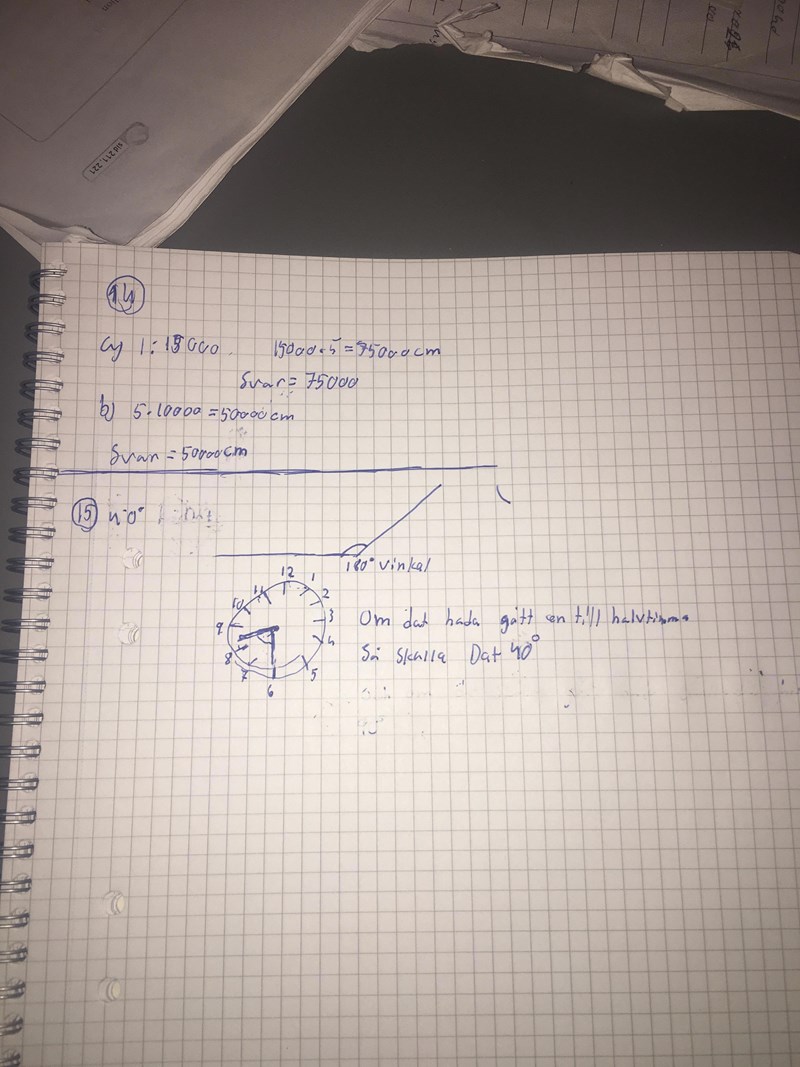 sid 211, 221
14
a) 1:15000. 15000·5=75000cm
Svar= 75000
b) 5·10000=50000cm
Svar=50000cm
15 40°
180° vinkal
12
11 1
10 2
9 3
8 4
7 5
6
Om dat hada gått en till halvtimma
Så skulla Dat 40°